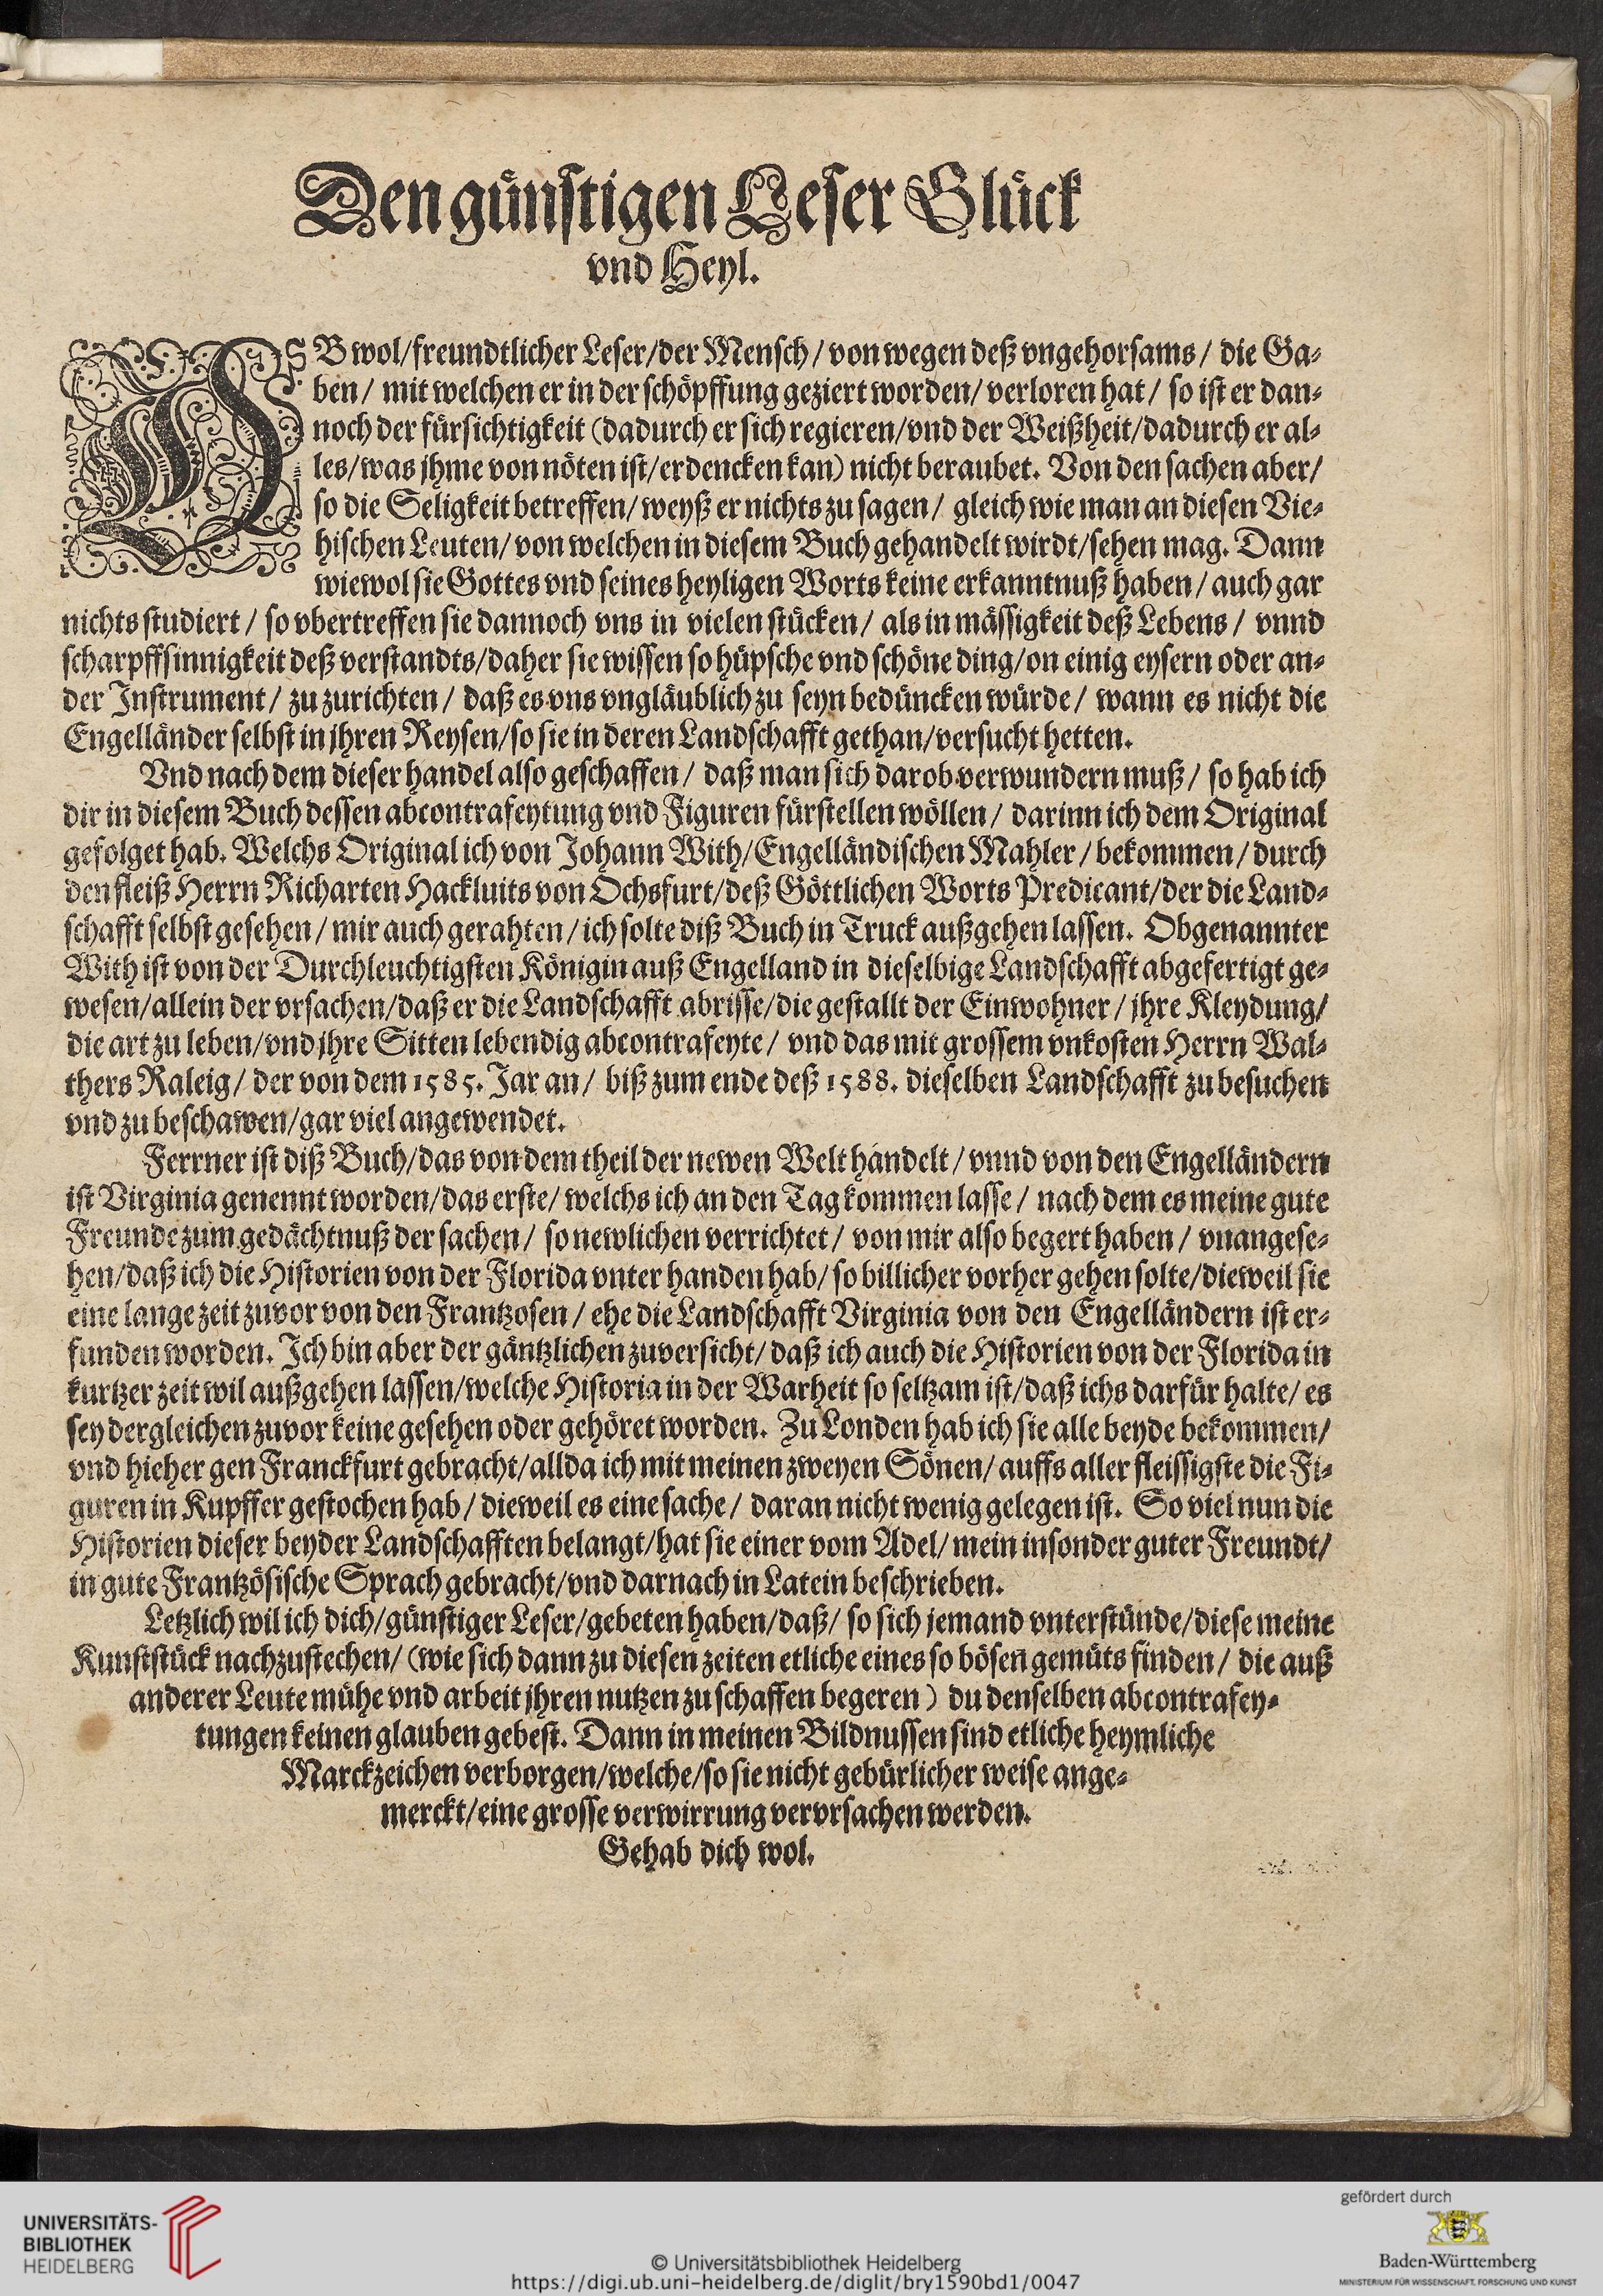 Den günstigen Leser Glück
vnd Heyl.
OB wol/freundtlicher Leser/der Mensch/von wegen deß vngehorsams/die Ga-
ben/mit welchen er in der schöpffung geziert worden/verloren hat/so ist er dan-
noch der fürsichtigkeit (dadurch er sich regieren/vnd der Weißheit/dadurch er al-
les/was jhme von nöten ist/erdencken kan) nicht beraubet. Von den sachen aber/
so die Seligkeit betreffen/weyß er nichts zu sagen/gleich wie man an diesen Vie-
hischen Leuten/von welchen in diesem Buch gehandelt wirdt/sehen mag. Dann
wiewol sie Gottes vnd seines heyligen Worts keine erkanntnuß haben/auch gar
nichts studiert/so vbertreffen sie dannoch vns in vielen stücken/als in mässigkeit deß Lebens/vnnd
scharpffsinnigkeit deß verstandts/daher sie wissen so hüpsche vnd schöne ding/on einig eysern oder an-
der Instrument/zu zurichten/daß es vns vngläublich zu seyn bedüncken würde/wann es nicht die
Engelländer selbst in jhren Reysen/so sie in deren Landschafft gethan/versucht hetten.
Vnd nach dem dieser handel also geschaffen/daß man sich darob verwundern muß/so hab ich
dir in diesem Buch dessen abcontrafeytung vnd Figuren fürstellen wöllen/darinn ich dem Original
gefolget hab. Welchs Original ich von Johann With/Engelländischen Mahler/bekommen/durch
den fleiß Herrn Richarten Hackluits von Ochsfurt/deß Göttlichen Worts Predicant/der die Land-
schafft selbst gesehen/mir auch gerahten/ich solte diß Buch in Truck außgehen lassen. Obgenannter
With ist von der Durchleuchtigsten Königin auß Engelland in dieselbige Landschafft abgefertigt ge-
wesen/allein der vrsachen/daß er die Landschafft abrisse/die gestallt der Einwohner/jhre Kleydung/
die art zu leben/vnd jhre Sitten lebendig abcontrafeyte/vnd das mit grossem vnkosten Herrn Wal-
thers Raleig/der von dem 1585. Jar an/biß zum ende deß 1588. dieselben Landschafft zu besuchen
vnd zu beschawen/gar viel angewendet.
Ferrner ist diß Buch/das von dem theil der newen Welt handelt/vnnd von den Engelländern
ist Virginia genennt worden/das erste/welchs ich an den Tag kommen lasse/nach dem es meine gute
Freunde zum gedächtnuß der sachen/so newlichen verrichtet/von mir also begert haben/vnangese-
hen/daß ich die Historien von der Florida vnter handen hab/so billicher vorher gehen solte/dieweil sie
eine lange zeit zuvor von den Frantzosen/ehe die Landschafft Virginia von den Engelländern ist er-
funden worden. Ich bin aber der gäntzlichen zuversicht/daß ich auch die Historien von der Florida in
kurtzer zeit wil außgehen lassen/welche Historia in der Warheit so seltzam ist/daß ichs darfür halte/es
sey dergleichen zuvor keine gesehen oder gehöret worden. Zu Londen hab ich sie alle beyde bekommen/
vnd hieher gen Franckfurt gebracht/allda ich mit meinen zweyen Sönen/auffs aller fleissigste die Fi-
guren in Kupffer gestochen hab/dieweil es eine sache/daran nicht wenig gelegen ist. So viel nun die
Historien dieser beyder Landschafften belangt/hat sie einer vom Adel/mein insonder guter Freundt/
in gute Frantzösische Sprach gebracht/vnd darnach in Latein beschrieben.
Letzlich wil ich dich/günstiger Leser/gebeten haben/daß/so sich jemand vnterstünde/diese meine
Kunststück nachzustechen/(wie sich dann zu diesen zeiten etliche eines so bösen gemüts finden/die auß
anderer Leute mühe vnd arbeit jhren nutzen zu schaffen begeren) du denselben abcontrafey-
tungen keinen glauben gebest. Dann in meinen Bildnussen sind etliche heymliche
Marckzeichen verborgen/welche/so sie nicht gebürlicher weise ange-
merckt/eine grosse verwirrung vervrsachen werden.
Gehab dich wol.
UNIVERSITÄTS-
BIBLIOTHEK
HEIDELBERG
© Universitätsbibliothek Heidelberg
https://digi.ub.uni-heidelberg.de/diglit/bry1590bd1/0047
gefördert durch
Baden-Württemberg
MINISTERIUM FÜR WISSENSCHAFT, FORSCHUNG UND KUNST